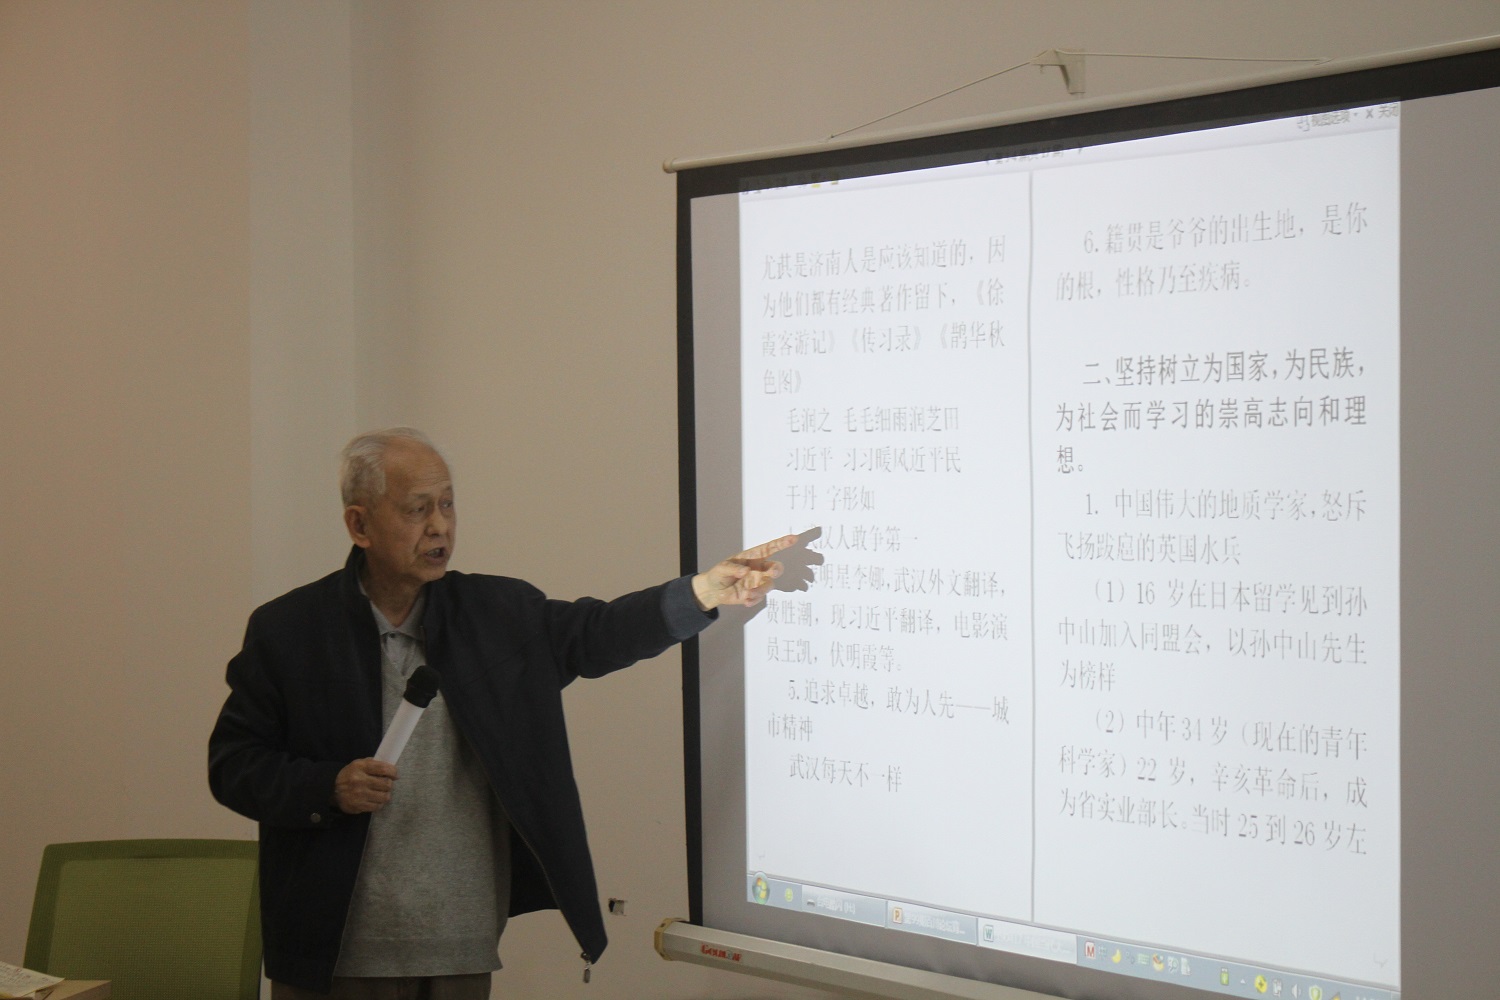 尤其是济南人是应该知道的，因
为他们都有经典著作留下，《徐
霞客游记》《传习录》《鹊华秋
色图》
毛润之 毛毛细雨润芝田
习近平 习习暖风近平民
于丹 字彤如
武汉人敢争第一
明星李娜，武汉外文翻译，
费胜潮，现习近平翻译，电影演
员王凯，伏明霞等。
5.追求卓越，敢为人先——城
市精神
武汉每天不一样
6.籍贯是爷爷的出生地，是你
的根，性格乃至疾病。
二、坚持树立为国家，为民族，
为社会而学习的崇高志向和理
想。
1. 中国伟大的地质学家，怒斥
飞扬跋扈的英国水兵
（1）16 岁在日本留学见到孙
中山加入同盟会，以孙中山先生
为榜样
（2）中年34岁（现在的青年
科学家）22 岁，辛亥革命后，成
为省实业部长。当时 25 到 26 岁左